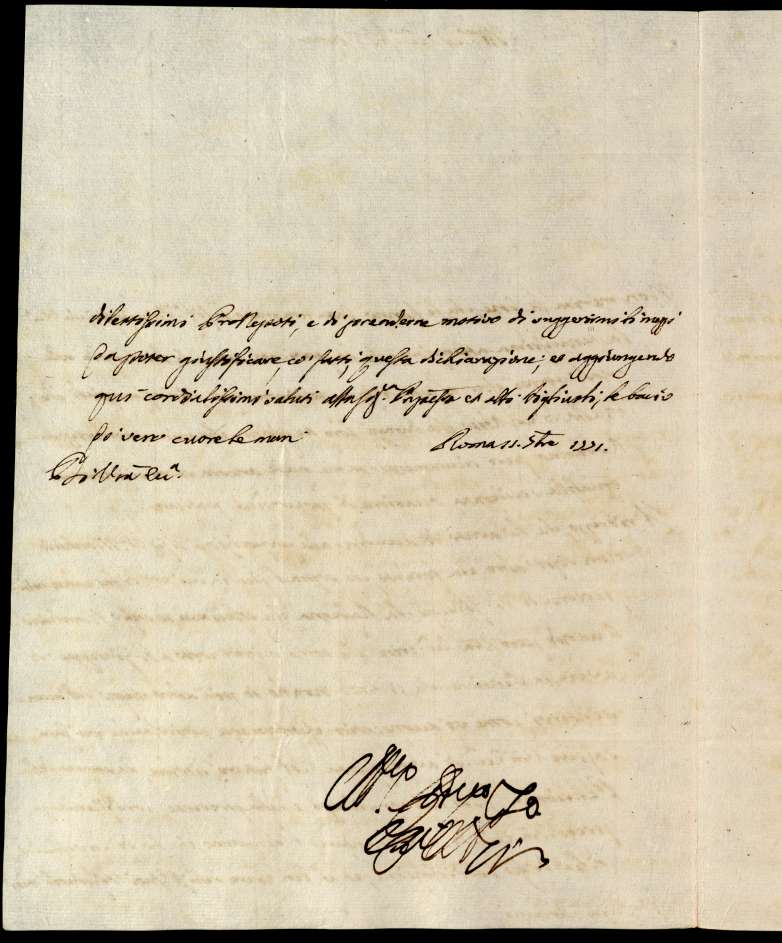 dilettissimi ProNepoti, e di prenderne motivo di suggerirmi li mezzi
da poter giustificare, co' fatti, questa dichiarazione; ed aggiungendo
quì cordialissimi saluti alla Sig.ra et alli figliuoli, le bacio
di vero cuore le mani
Roma 11. 7bre 1771.
Aff.mo